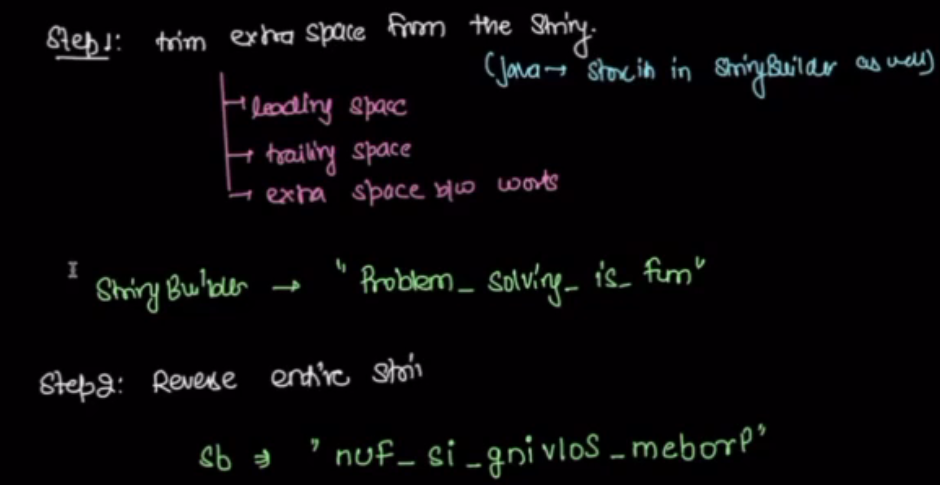 Step1: trim extra space from the string.
(Java → store in in StringBuilder as well)
→ leading space
→ trailing space
→ extra space b/w words
StringBuilder → "Problem_ solving_ is_ fun"
Step2: Reverse entire strin
sb ⇒ "nuf_ si _gnivloS _meborP"